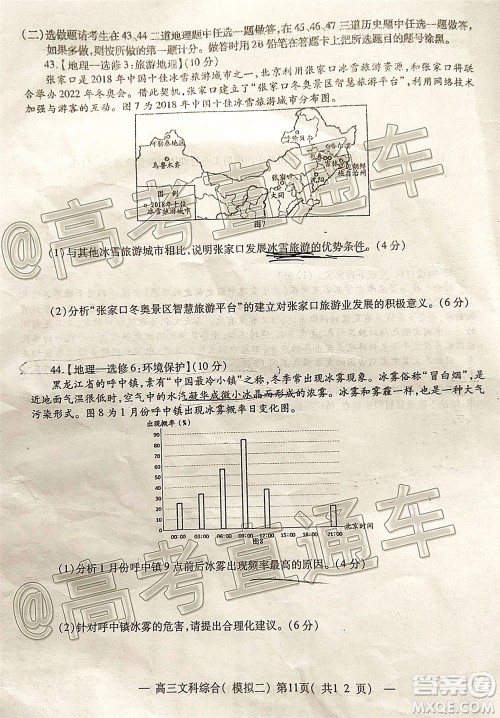 (二)选做题请考生在43、44二道地理题中任选一题做答,在45、46、47三道历史题中任选一题做答,
如果多做,则按所做的第一题计分。做答时用2B铅笔在答题卡上把所选题目的题号涂黑。
43.【地理—选修3:旅游地理】(10分)
张家口是2018年中国十佳冰雪旅游城市之一,北京利用张家口冰雪旅游资源,将与张家口联
合举办2022年冬奥会。借此契机,张家口打造了“张家口冬奥景区智慧旅游平台”,利用网络技术
加强与游客的互动。图7为2018年中国十佳冰雪旅游城市分布图。
阿勒泰地区
乌鲁木齐
呼伦贝尔
张家口
大同
沈阳
延边朝鲜族自治州
图例
2018年十佳
冰雪旅游城市
图7
(1)与其他冰雪旅游城市相比,说明张家口发展冰雪旅游的优势条件。(4分)
(2)分析“张家口冬奥景区智慧旅游平台”的建立对张家口旅游业发展的积极意义。(6分)
44.【地理—选修6:环境保护】(10分)
黑龙江省的呼中镇,素有“中国最冷小镇”之称,冬季常出现冰雾现象。冰雾俗称“冒白烟”,是
近地面大气温度很低时,空气中的水汽凝华成微小冰晶而形成的浓雾。冰雾和雾霾一样,也是一种大气
污染形式。图8为1月份呼中镇出现冰雾概率日变化图。
出现概率(%)
90
80
70
60
50
40
30
20
10
0
00:00 03:00 06:00 09:00 12:00 15:00 18:00 21:00
北京时间
图8
(1)分析1月份呼中镇9点前后冰雾出现频率最高的原因。(4分)
(2)针对呼中镇冰雾的危害,请提出合理化建议。(6分)
— 高三文科综合(模拟二) 第11页(共12页) —
@高考直通车
@高考直通车